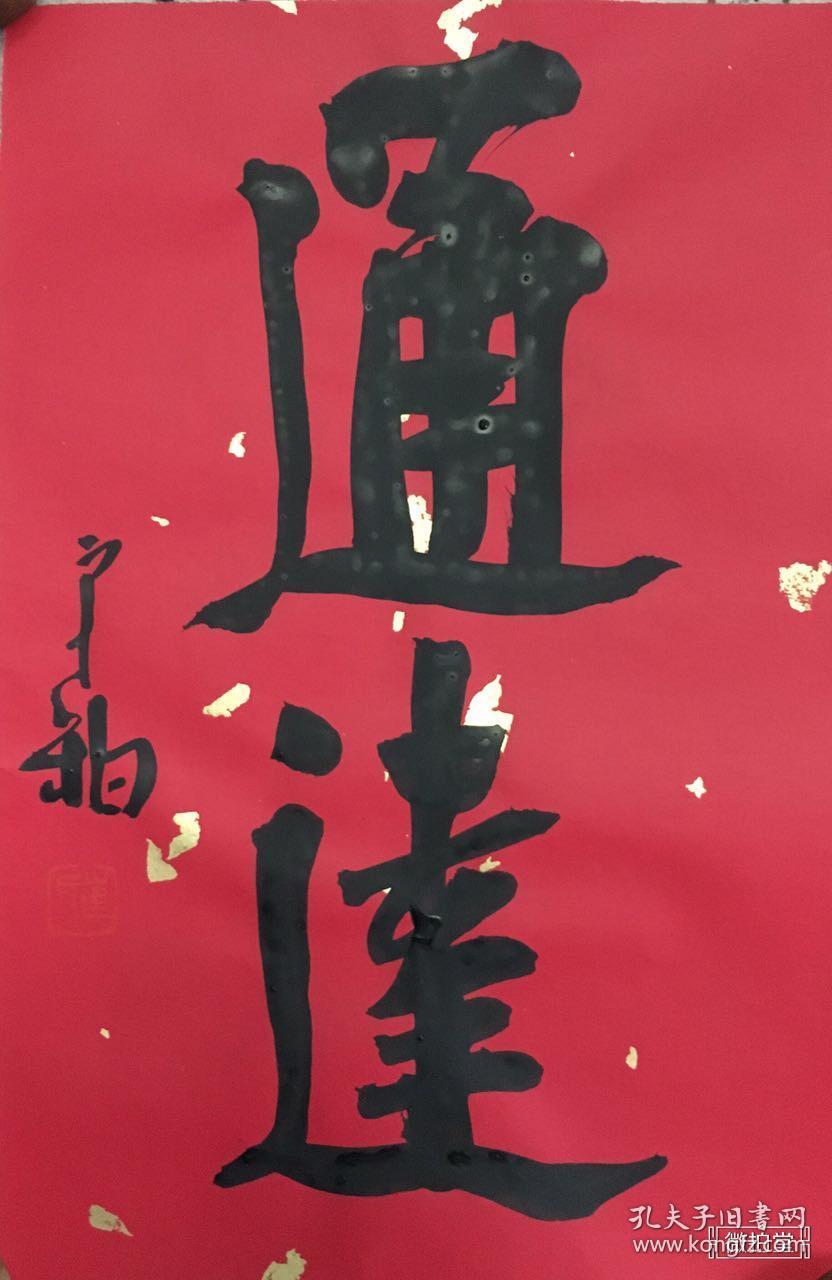 通達
孔夫子旧書网
www.kongfz.com
微拍堂